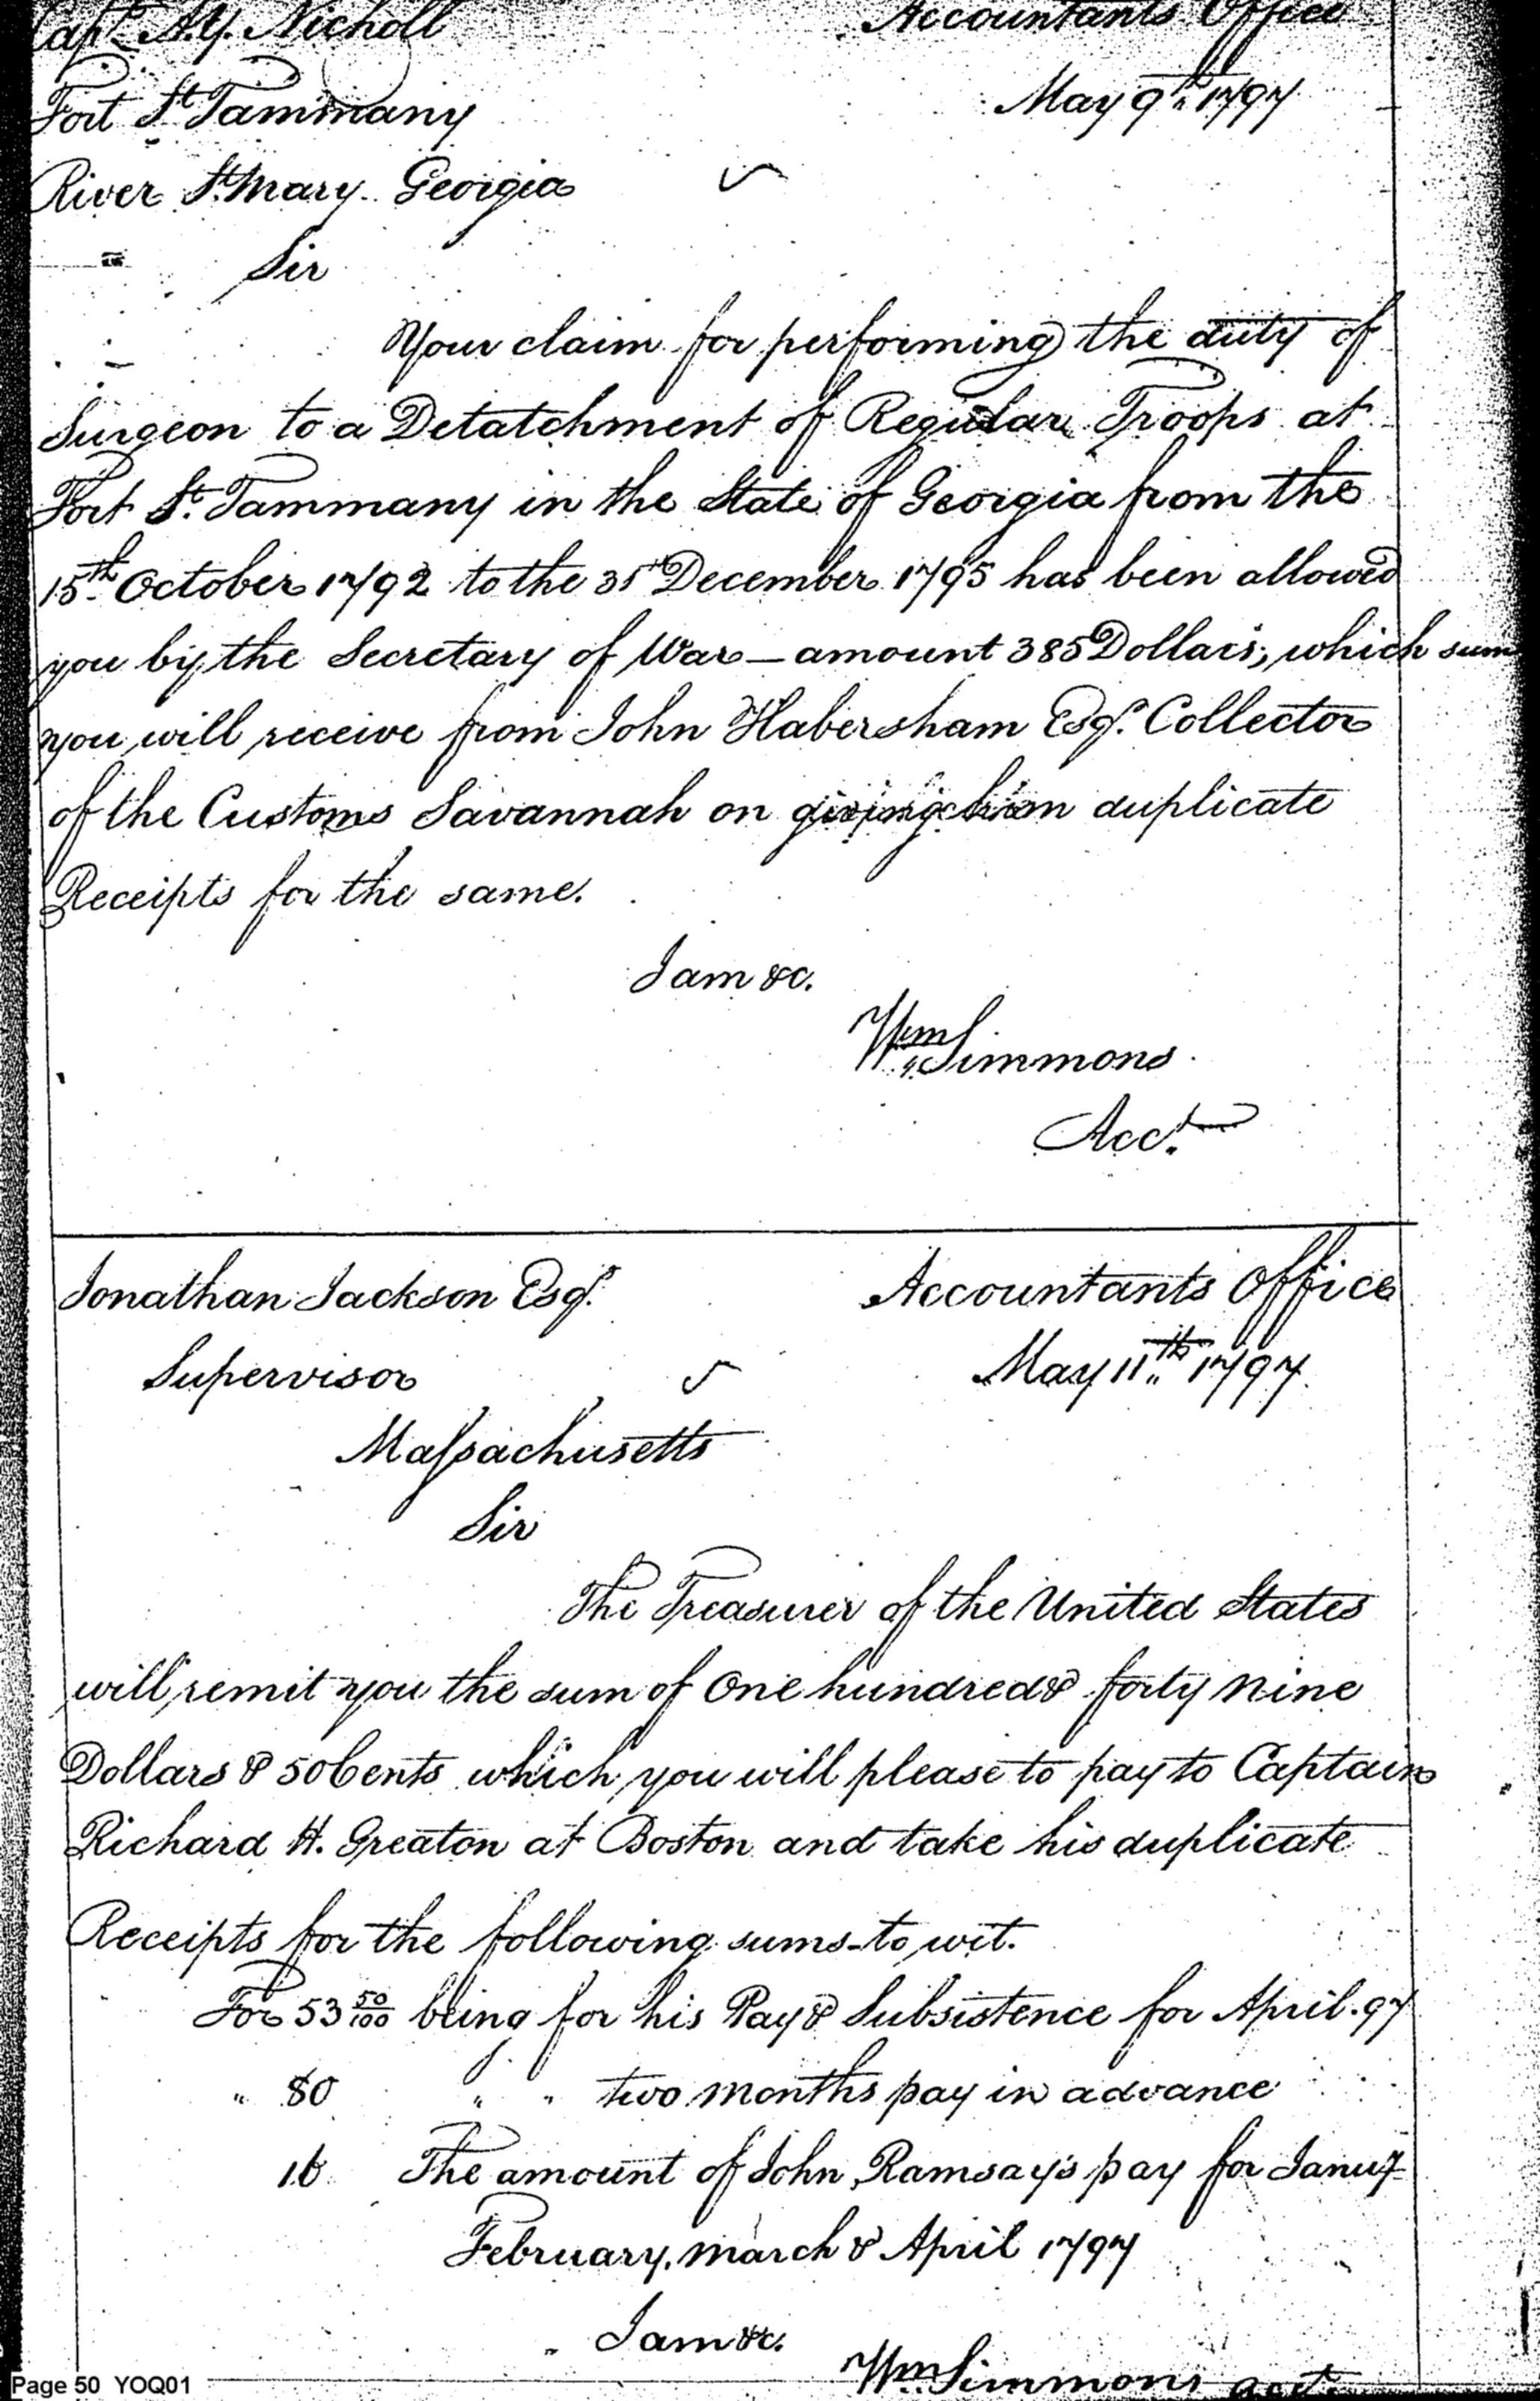 Capt. A.Y. Nicholl
Accountants Office
Fort St. Tammany
May 9th. 1797
River St. Mary. Georgia
Sir
Your claim for performing the duty of
Surgeon to a Detatchment of Regular Troops at
Fort St. Tammany in the State of Georgia from the
15th. October 1792 to the 31st December 1795 has been allowed
you by the Secretary of War – amount 385 Dollars, which sum
you will receive from John Habersham Esqr. Collector
of the Customs Savannah on giving him duplicate
Receipts for the same.
I am &c.
Wm. Simmons
Acct.
Jonathan Jackson Esqr.
Accountants Office
Supervisor
May 11th. 1797.
Massachusetts
Sir
The Treasurer of the United States
will remit you the sum of One hundred & forty nine
Dollars & 50 Cents which you will please to pay to Captain
Richard H. Greaton at Boston and take his duplicate
Receipts for the following sums – to wit.
For 53 50/100 being for his Pay & Subsistence for April. 97
" 80 " " two months pay in advance
16 The amount of John Ramsay's pay for Januy
February, march & April 1797
I am &c.
Wm. Simmons acct.
Page 50 YOQ01